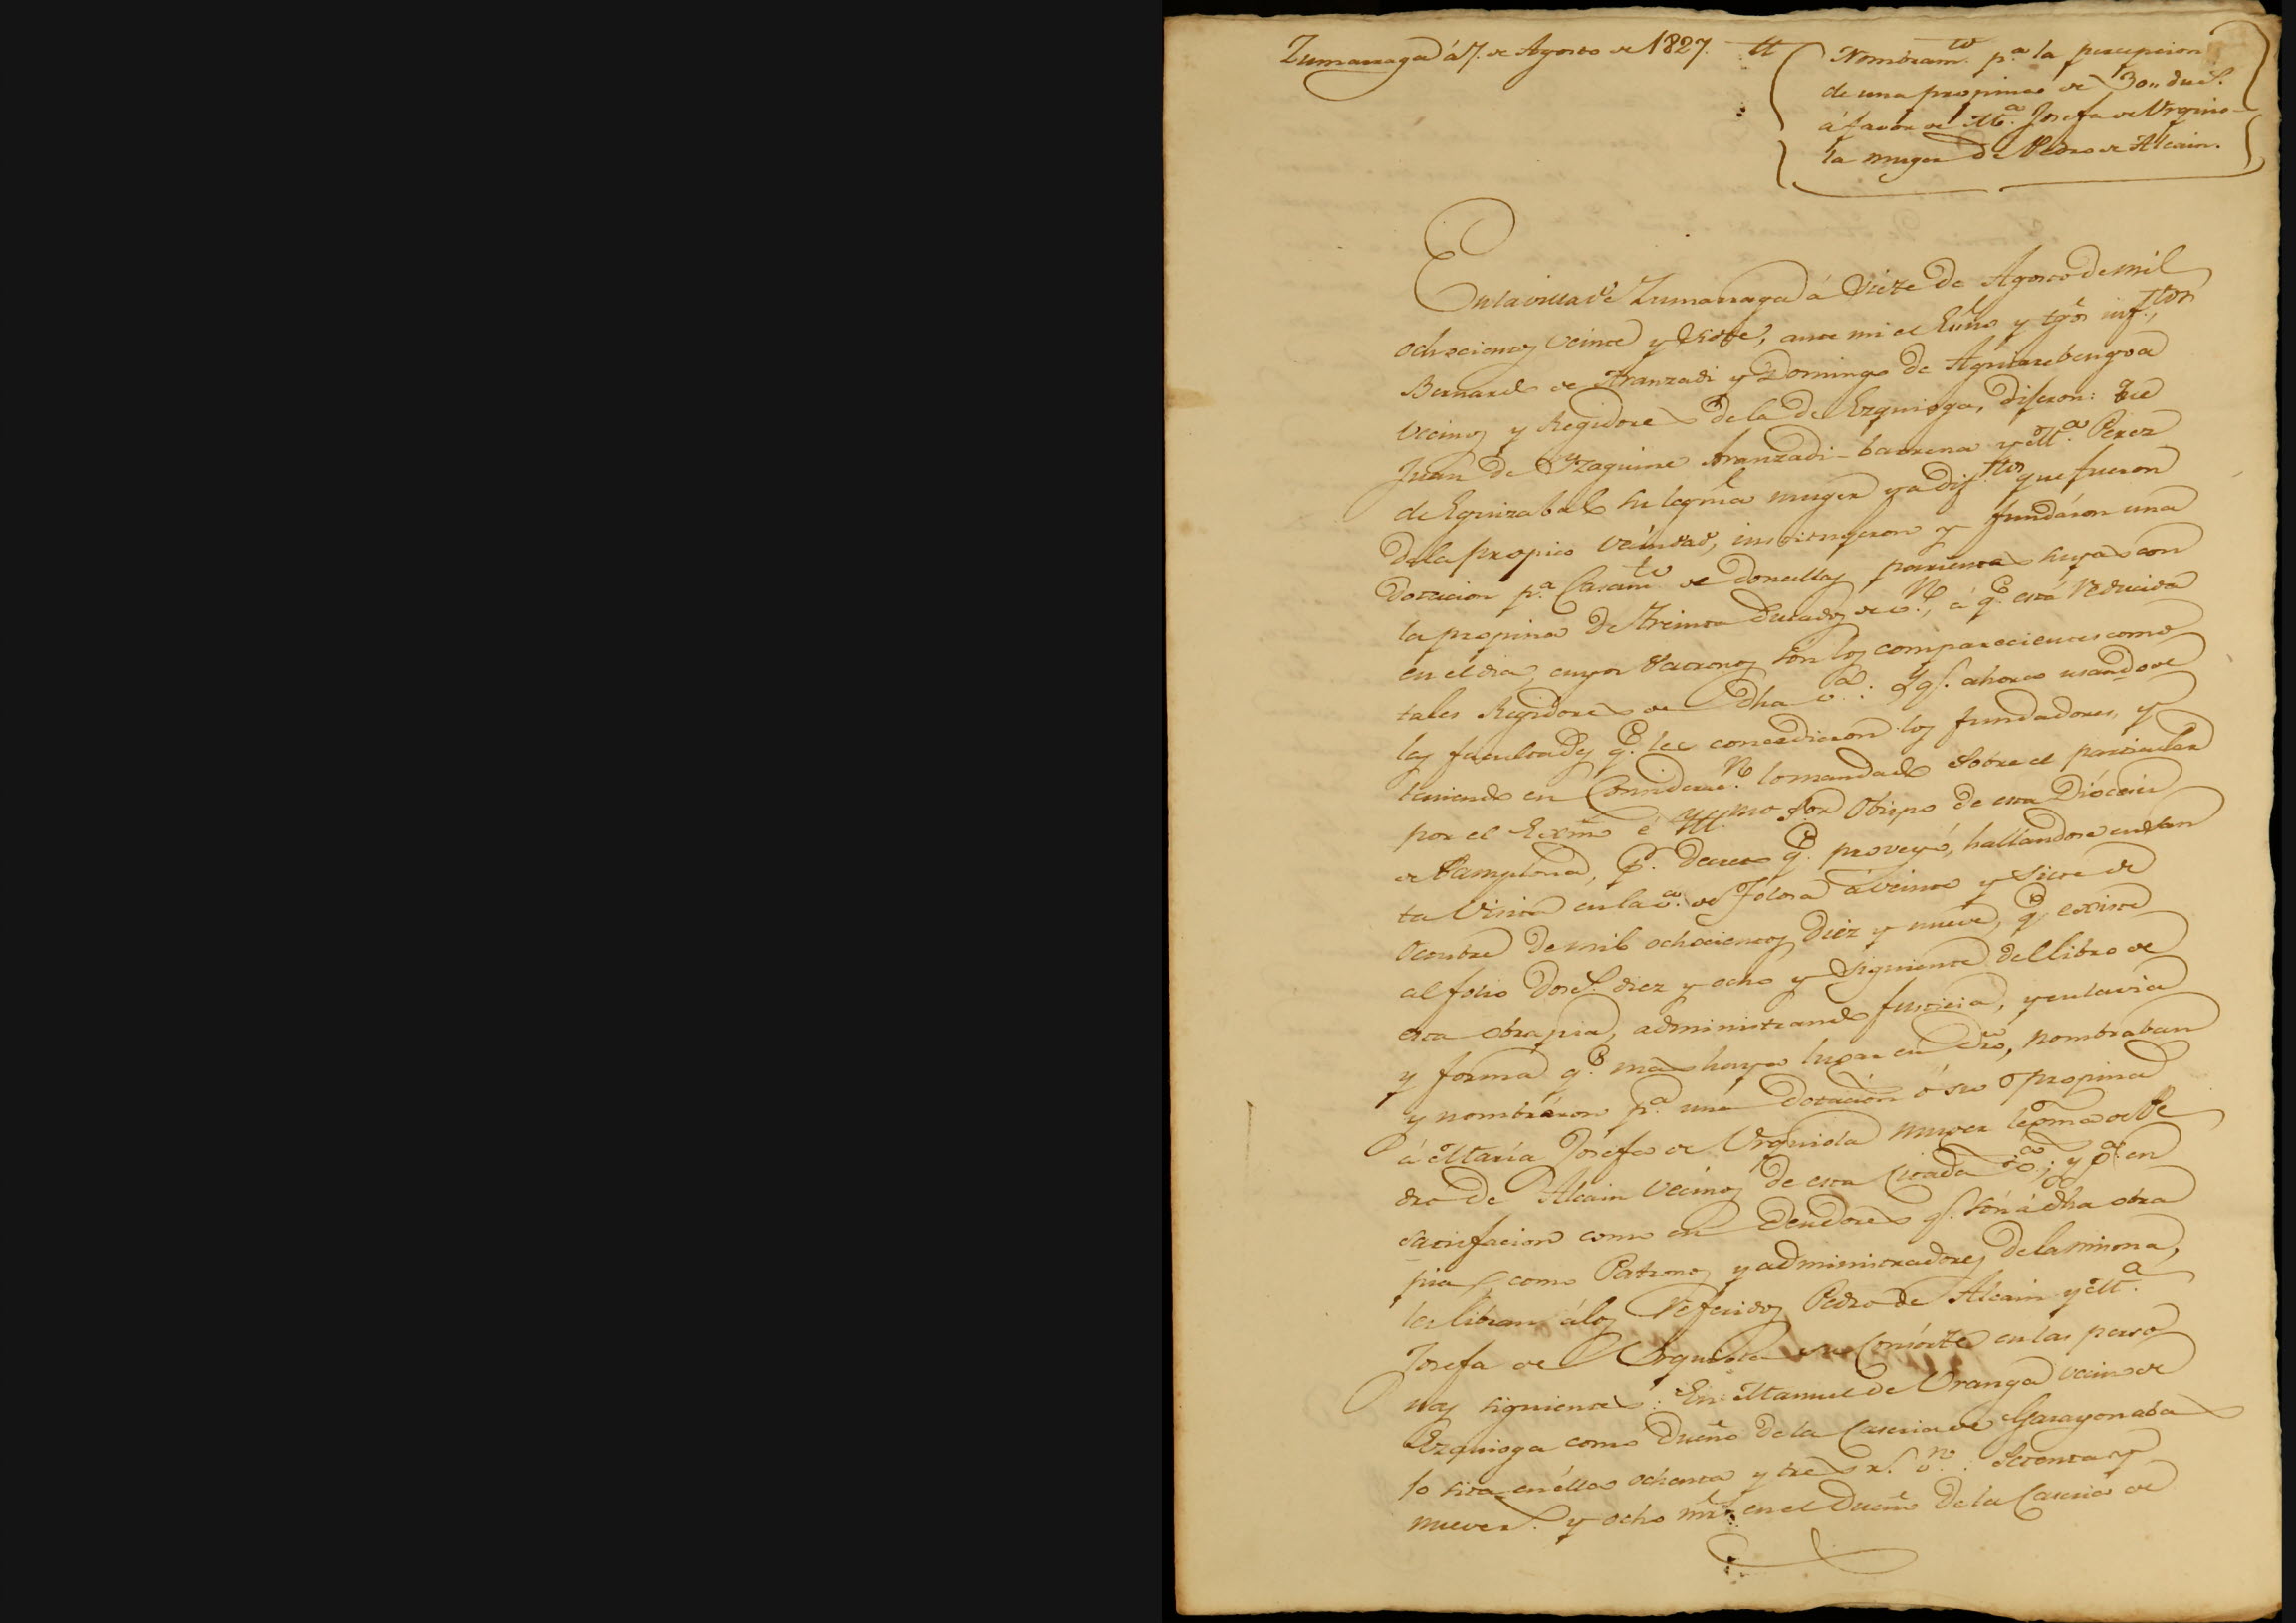 Zumarraga á 7. de Agosto de 1827.
Nombram.to p.a la percepcion
de una propina de 30,, duc.s
á favor de M.a Josefa de Urquio-
la muger de Pedro de Alcain.
En la villa de Zumarraga á siete de Agosto de mil
ochocientos veinte y siete, ante mi el Esno y tgos inf.tos,
Bernardo de Aranzadi y Domingo de Aguirrebengoa
vecinos y Regidores de la de Ezquioga, dijeron: Que
Juan de Yzaguirre Aranzadi-barrena y M.a Perez
de Eguizabal su legma muger ya dif.tos que fueron
de la propia vecindad, instituyeron y fundáron una
dotacion p.a Casam.to de doncellas parientas suyas con
la propina de treinta Ducados de v.n, á q.e está reducida
en el dia, cuyos Patronos són los comparecientes como
tales Regidores de dha v.a: Y q.e ahora usando de
las facultades q.e les concedieron los fundadores, y
teniendo en Considerac.n lo mandado sobre el particular
por el Exmo é Yll.mo Sor Obispo de esta Diócesis
de Pamplona, p.r decreto q.e proveyó, hallandose en San
ta Visita en la v.a de Tolosa á veinte y siete de
Octubre de mil ochocientos diez y nueve, q.e existe
al folio dos.s diez y ocho y siguiente del libro de
esta obra pia, administrando justicia, y en la via
y forma q.e mas haya lugar en dro, nombraban
y nombráron p.a una dotacion ó sea propina
á María Josefa de Urquiola muger legma de Pe
dro de Alcain vecinos de esta citada v.a; y p.a en
satisfacion como en deudores q.e són á dha obra
pia, como Patronos y administradores de la misma,
les libran á los referidos Pedro de Alcain y M.a
Josefa de Urquiola su Consorte en las perso
nas siguientes: En Manuel de Uranga vecino de
Ezquioga como dueño de la Caseria de Garayonaba
lo sita en élla ochenta y tres r.s v.n: Setenta y
nueve r.s y ocho mrs en el Dueño de la Caseria de